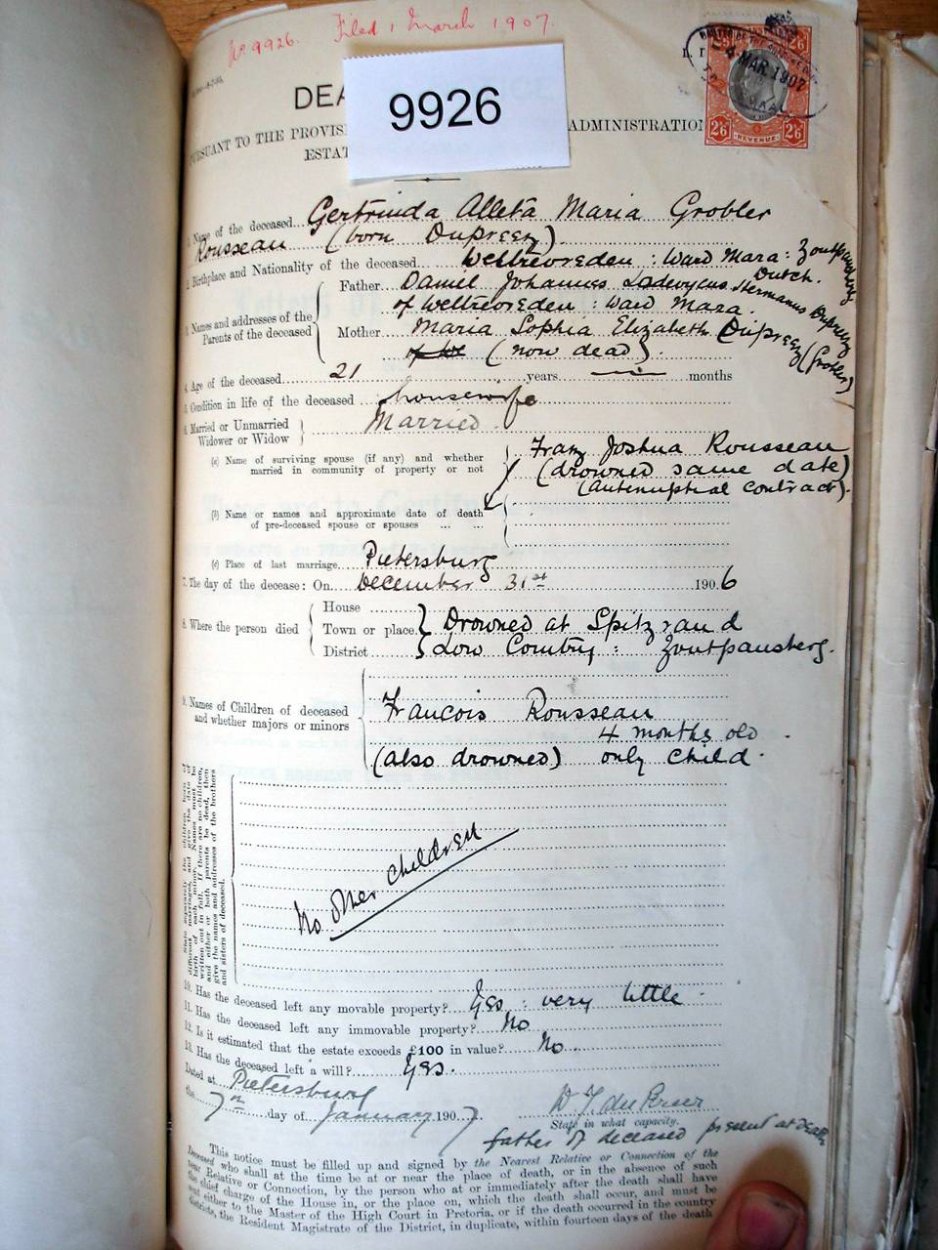 No. 9926. Filed 1 March 1907.
DEA
9926
PURSUANT TO THE PROVIS ADMINISTRATIO
ESTAT
4 MAR 1907
2/6 2/6
2/6 REVENUE 2/6
1. Name of the deceased Gertruida Alleta Maria Grobler
Rousseau (born Dupreez).
2. Birthplace and Nationality of the deceased Weltevreden : Ward Mara : Zoutpansberg
Dutch.
3. Names and addresses of the Parents of the deceased
Father Daniel Johannes Lodewycus Hermanus Dupreez
of Weltevreden : Ward Mara.
Mother Maria Sophia Elizabeth Dupreez (Grobler)
(now dead).
4. Age of the deceased 21 years — months
5. Condition in life of the deceased housewife
6. Married or Unmarried Married.
Widower or Widow
(a) Name of surviving spouse (if any) and whether married in community of property or not
Franz Joshua Rousseau
(drowned same date)
(antenuptial contract).
(b) Name or names and approximate date of death of pre-deceased spouse or spouses ... ...
(c) Place of last marriage Pietersburg
7. The day of the decease: On December 31st 1906
8. Where the person died
House
Town or place Drowned at Spitzrand
District Low Country : Zoutpansberg.
9. Names of Children of deceased and whether majors or minors
Francois Rousseau
4 months old
(also drowned) only child.
State separately the children born of different marriages, and give the date of birth of each minor. Names must be written out in full. If there are no children, and either or both parents be dead, then give the names and addresses of the brothers and sisters of deceased.
No other children
10. Has the deceased left any movable property? Yes : very little.
11. Has the deceased left any immovable property? No
12. Is it estimated that the estate exceeds £100 in value? No.
13. Has the deceased left a will? Yes.
Dated at Pietersburg
the 7th day of January 1907.
State in what capacity.
father of deceased present at death
This notice must be filled up and signed by the Nearest Relative or Connection of the
Deceased who shall at the time be at or near the place of death, or in the absence of such
near Relative or Connection, by the person who at or immediately after the death shall have
the chief charge of the House in, or the place on, which the death shall occur, and must be
sent either to the Master of the High Court in Pretoria, or if the death occurred in the country
districts, the Resident Magistrate of the District, in duplicate, within fourteen days of the death